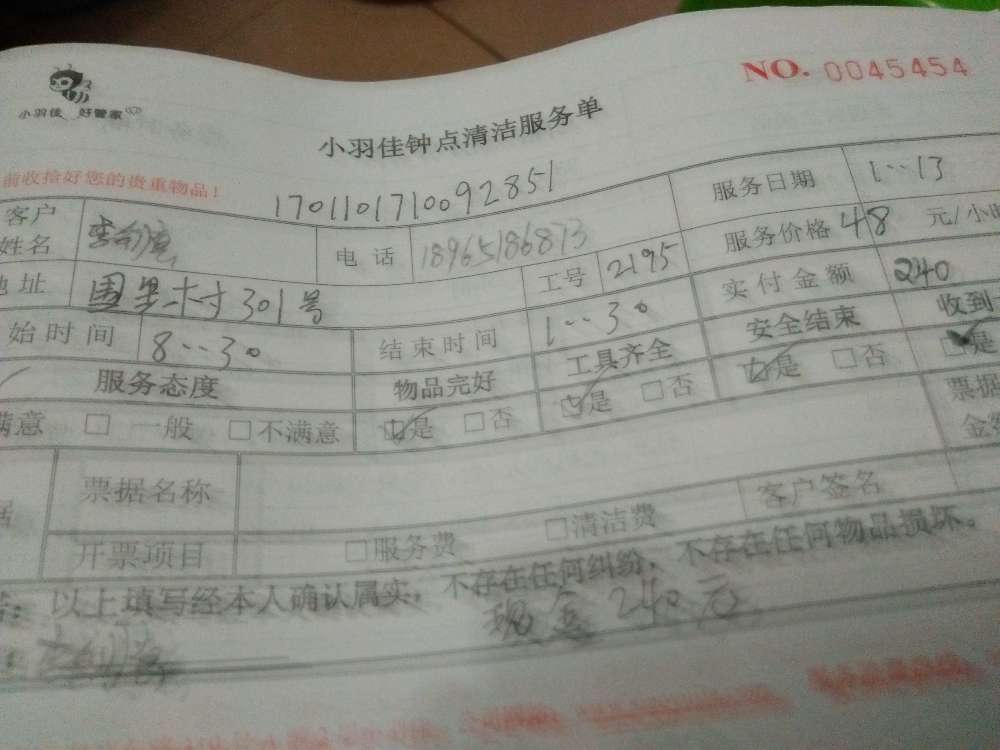 NO. 0045454
小羽佳 好管家
小羽佳钟点清洁服务单
前收拾好您的贵重物品!
1701101710092851
服务日期 1--13
客户姓名 电话 18965186873 服务价格 48 元/小时
地址 围里村301号 工号 2195 实付金额 240
始时间 8--30 结束时间 1--30 安全结束 收到
服务态度 物品完好 工具齐全 □是 □否 □是
满意 □ 一般 □不满意 □是 □否 □是 □否 票据
金额
票据名称 客户签名
开票项目 □服务费 □清洁费
以上填写经本人确认属实,不存在任何纠纷,不存在任何物品损坏。
现金240元